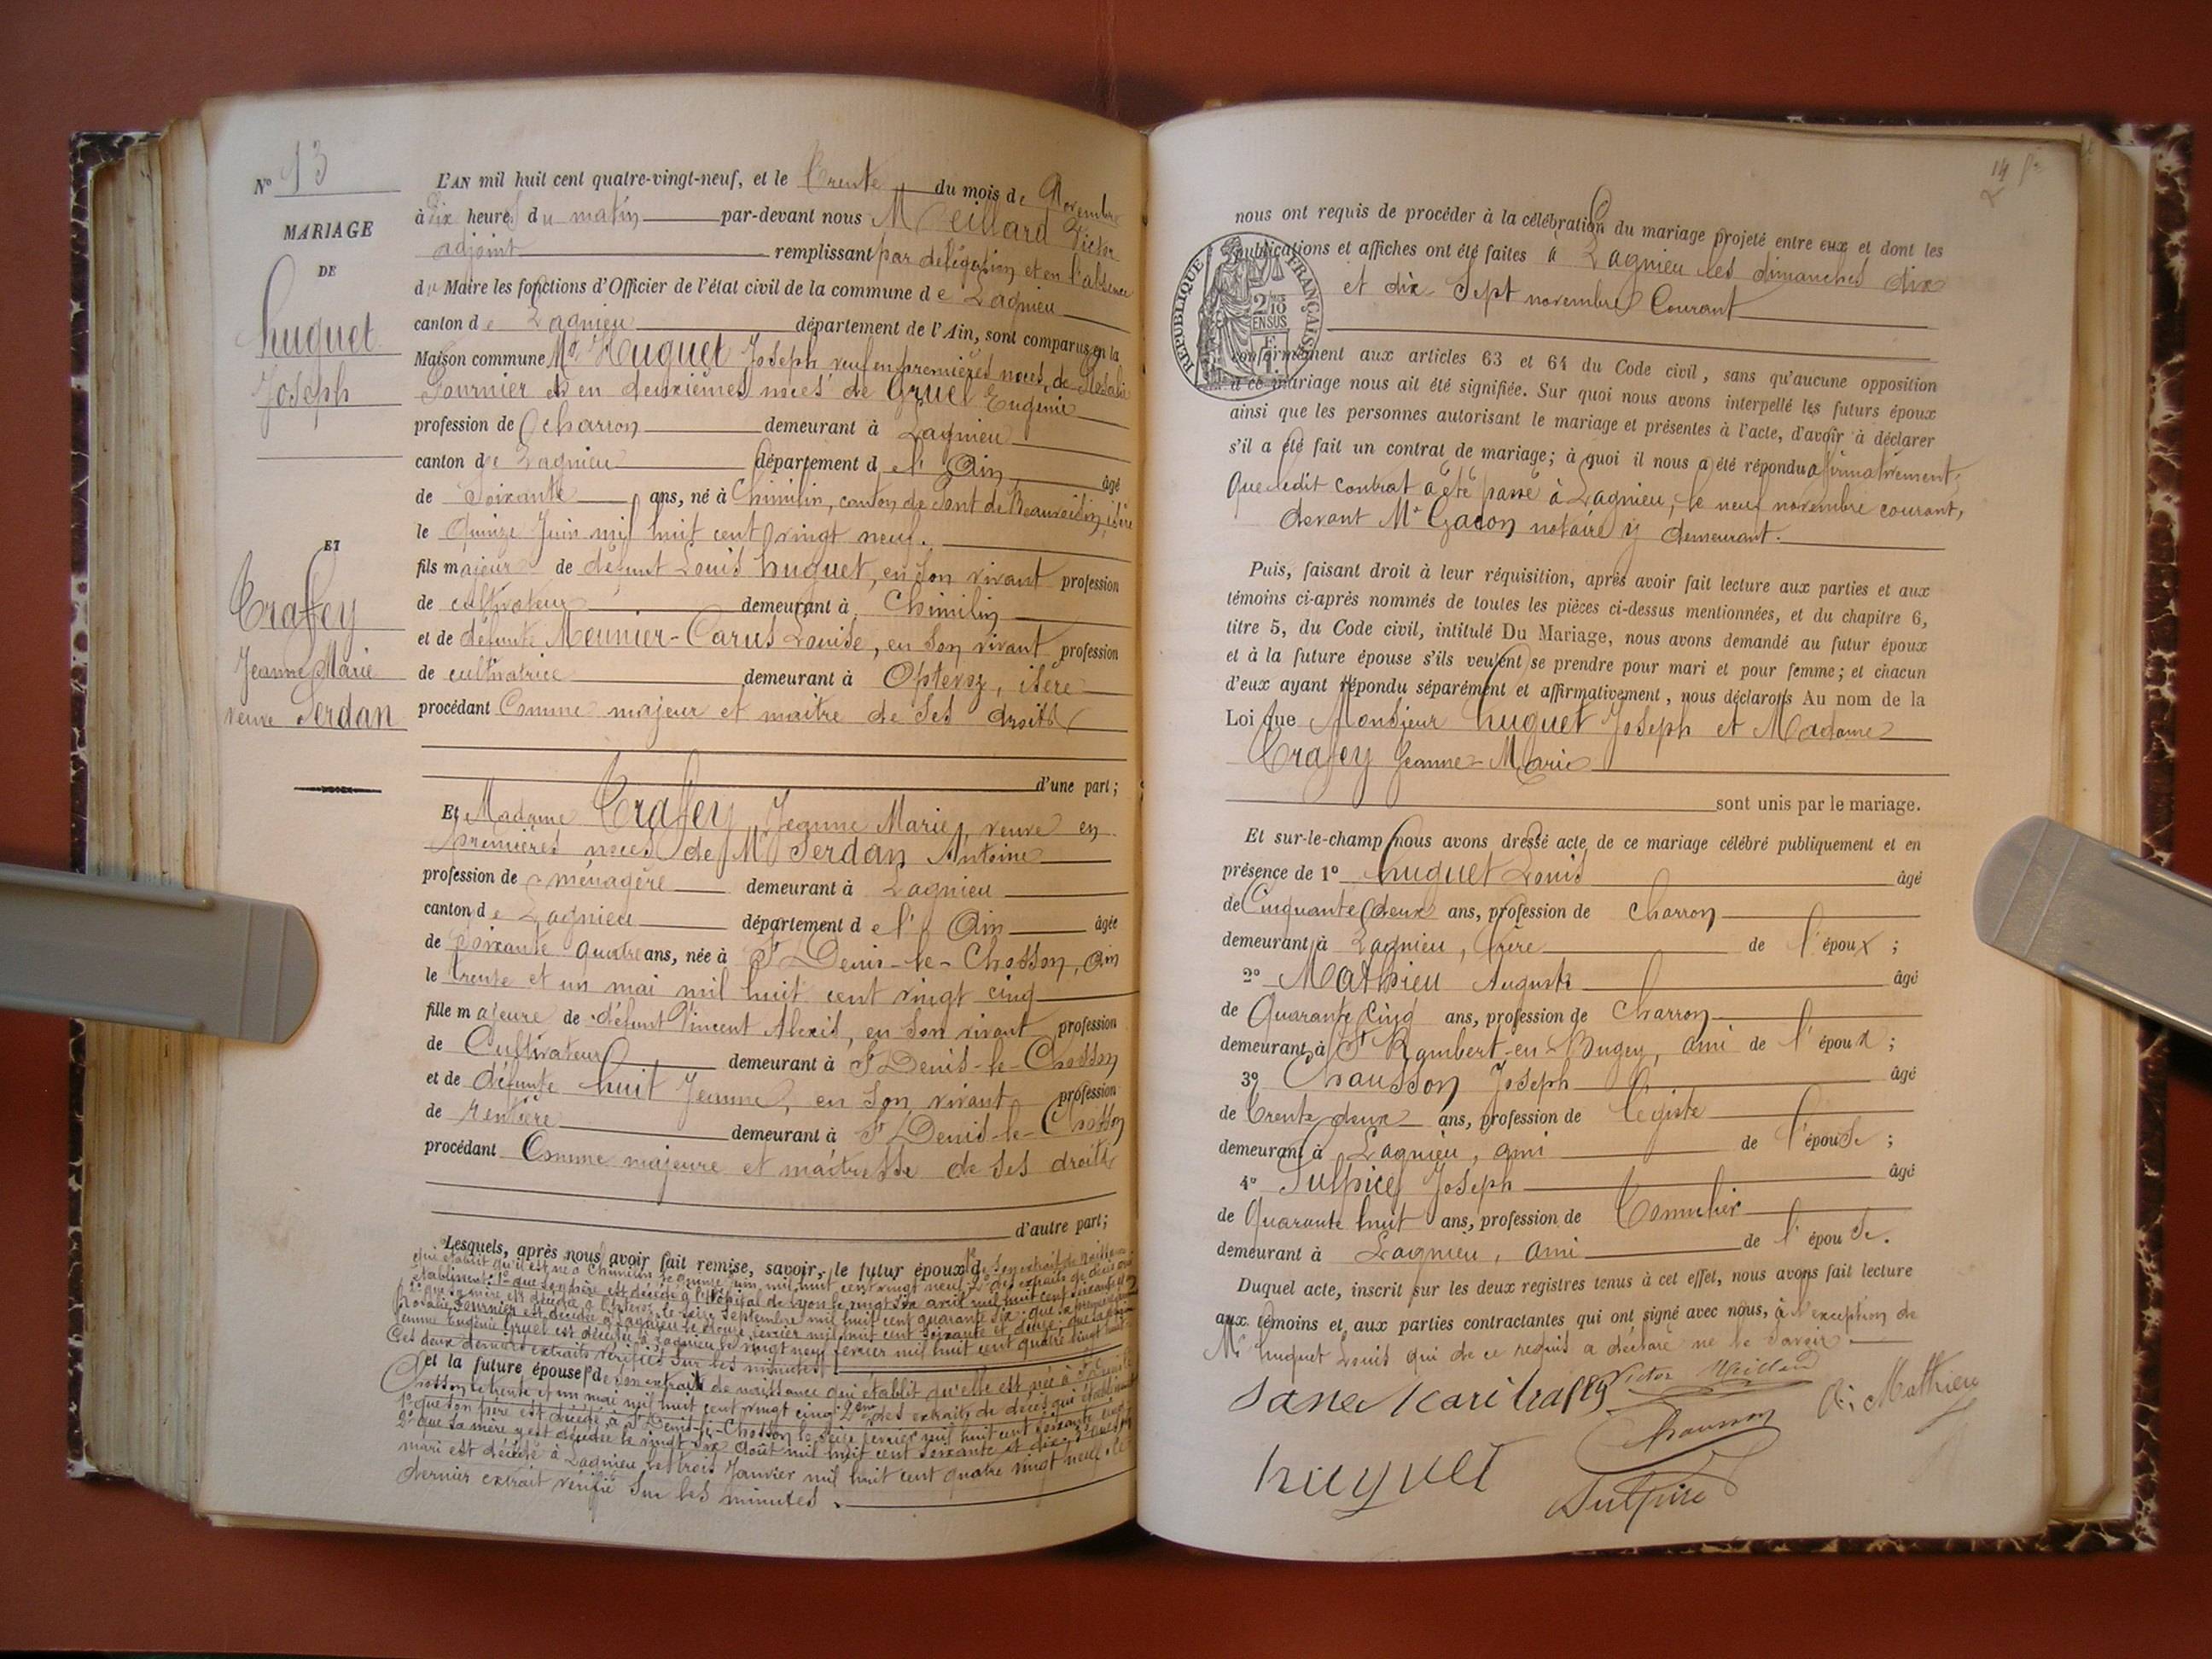 N° 13
MARIAGE
DE
huguet
Joseph
ET
Trafey
Jeanne Marie
veuve Serdan
L'AN mil huit cent quatre-vingt-neuf, et le trente du mois de Novembre
à dix heures du matin par-devant nous Meillard Victor
adjoint remplissant par délégation et en l'absence
du Maire les fonctions d'Officier de l'état civil de la commune de Lagnieu
canton de Lagnieu département de l'Ain, sont comparus en la
Maison commune Mr Huguet Joseph veuf en premières noces de Rosalie
Fournier et en deuxièmes noces de Gruel Eugénie
profession de charron demeurant à Lagnieu
canton de Lagnieu département de l'Ain âgé
de soixante ans, né à Chimilin, canton de Pont de Beauvoisin, isère
le quinze Juin mil huit cent vingt neuf.
fils majeur de défunt Louis huguet, en son vivant profession
de cultivateur demeurant à Chimilin
et de défunte Meunier-Carus Louise, en son vivant profession
de cultivatrice demeurant à Optevoz, isère
procédant Comme majeur et maitre de ses droits
d'une part;
Et Madame Trafey Jeanne Marie, veuve en
premières noces de Mr Serdan Antoine
profession de ménagère demeurant à Lagnieu
canton de Lagnieu département de l'Ain âgée
de soixante quatre ans, née à St Denis-le-Chosson, Ain
le trente et un mai mil huit cent vingt cinq
fille majeure de défunt Vincent Alexis, en son vivant profession
de Cultivateur demeurant à St Denis-le-Chosson
et de défunte huit Jeanne, en son vivant profession
de rentière demeurant à St Denis-le-Chosson
procédant Comme majeure et maîtresse de ses droits
d'autre part;
Lesquels, après nous avoir fait remise, savoir, le futur époux 1° de son extrait de naissance
qui établit qu'il est né à Chimilin le quinze juin mil huit cent vingt neuf 2° des extraits de décès qui
établissent: 1° que son père est décédé à l'hôpital de Lyon le vingt six avril mil huit cent
2° que sa mère est décédée à Optevoz le seize septembre mil huit cent quarante six; que sa première femme
Rosalie Fournier est décédée à Lagnieu le douze février mil huit cent soixante et douze; que sa
femme Eugénie Gruel est décédée à Lagnieu le vingt neuf février mil huit cent quatre vingt huit
Ces deux derniers extraits vérifiés sur les minutes
et la future épouse 1° de son extrait de naissance qui établit qu'elle est née à St Denis le
Chosson le trente et un mai mil huit cent vingt cinq 2ent des extraits de décès qui établissent
1° que son père est décédé à St Denis-le-Chosson le seize février mil huit cent soixante cinq
2° que sa mère y est décédée le vingt six Août mil huit cent soixante et dix 3° que son
mari est décédé à Lagnieu le trois Janvier mil huit cent quatre vingt neuf. Ce
dernier extrait vérifié sur les minutes.
14
nous ont requis de procéder à la célébration du mariage projeté entre eux et dont les
publications et affiches ont été faites à Lagnieu les dimanches dix
et dix Sept novembre Courant
RÉPUBLIQUE FRANÇAISE
2/10
EN SUS
conformément aux articles 63 et 64 du Code civil, sans qu'aucune opposition
à ce mariage nous ait été signifiée. Sur quoi nous avons interpellé les futurs époux
ainsi que les personnes autorisant le mariage et présentes à l'acte, d'avoir à déclarer
s'il a été fait un contrat de mariage; à quoi il nous a été répondu affirmativement,
que ledit contrat a été passé à Lagnieu, le neuf novembre courant,
devant Me Gacon notaire y demeurant.
Puis, faisant droit à leur réquisition, après avoir fait lecture aux parties et aux
témoins ci-après nommés de toutes les pièces ci-dessus mentionnées, et du chapitre 6,
titre 5, du Code civil, intitulé Du Mariage, nous avons demandé au futur époux
et à la future épouse s'ils veulent se prendre pour mari et pour femme; et chacun
d'eux ayant répondu séparément et affirmativement, nous déclarons Au nom de la
Loi que Monsieur huguet Joseph et Madame
Trafey Jeanne-Marie
sont unis par le mariage.
Et sur-le-champ nous avons dressé acte de ce mariage célébré publiquement et en
présence de 1° huguet Louis âgé
de Cinquante deux ans, profession de charron
demeurant à Lagnieu, frère de l'époux;
2° Mathieu Auguste âgé
de Quarante Cinq ans, profession de Charron
demeurant à St Rambert-en-Bugey, ami de l'époux;
3° Chausson Joseph âgé
de trente deux ans, profession de légiste
demeurant à Lagnieu, ami de l'épouse;
4° Sulpice Joseph âgé
de Quarante huit ans, profession de Tonnelier
demeurant à Lagnieu, ami de l'épouse.
Duquel acte, inscrit sur les deux registres tenus à cet effet, nous avons fait lecture
aux témoins et aux parties contractantes qui ont signé avec nous, à l'exception de
Mr huguet Louis qui de ce requis a déclaré ne le savoir.
Victor Meillard
A. Mathieu
Chausson
huguet
Sulpice